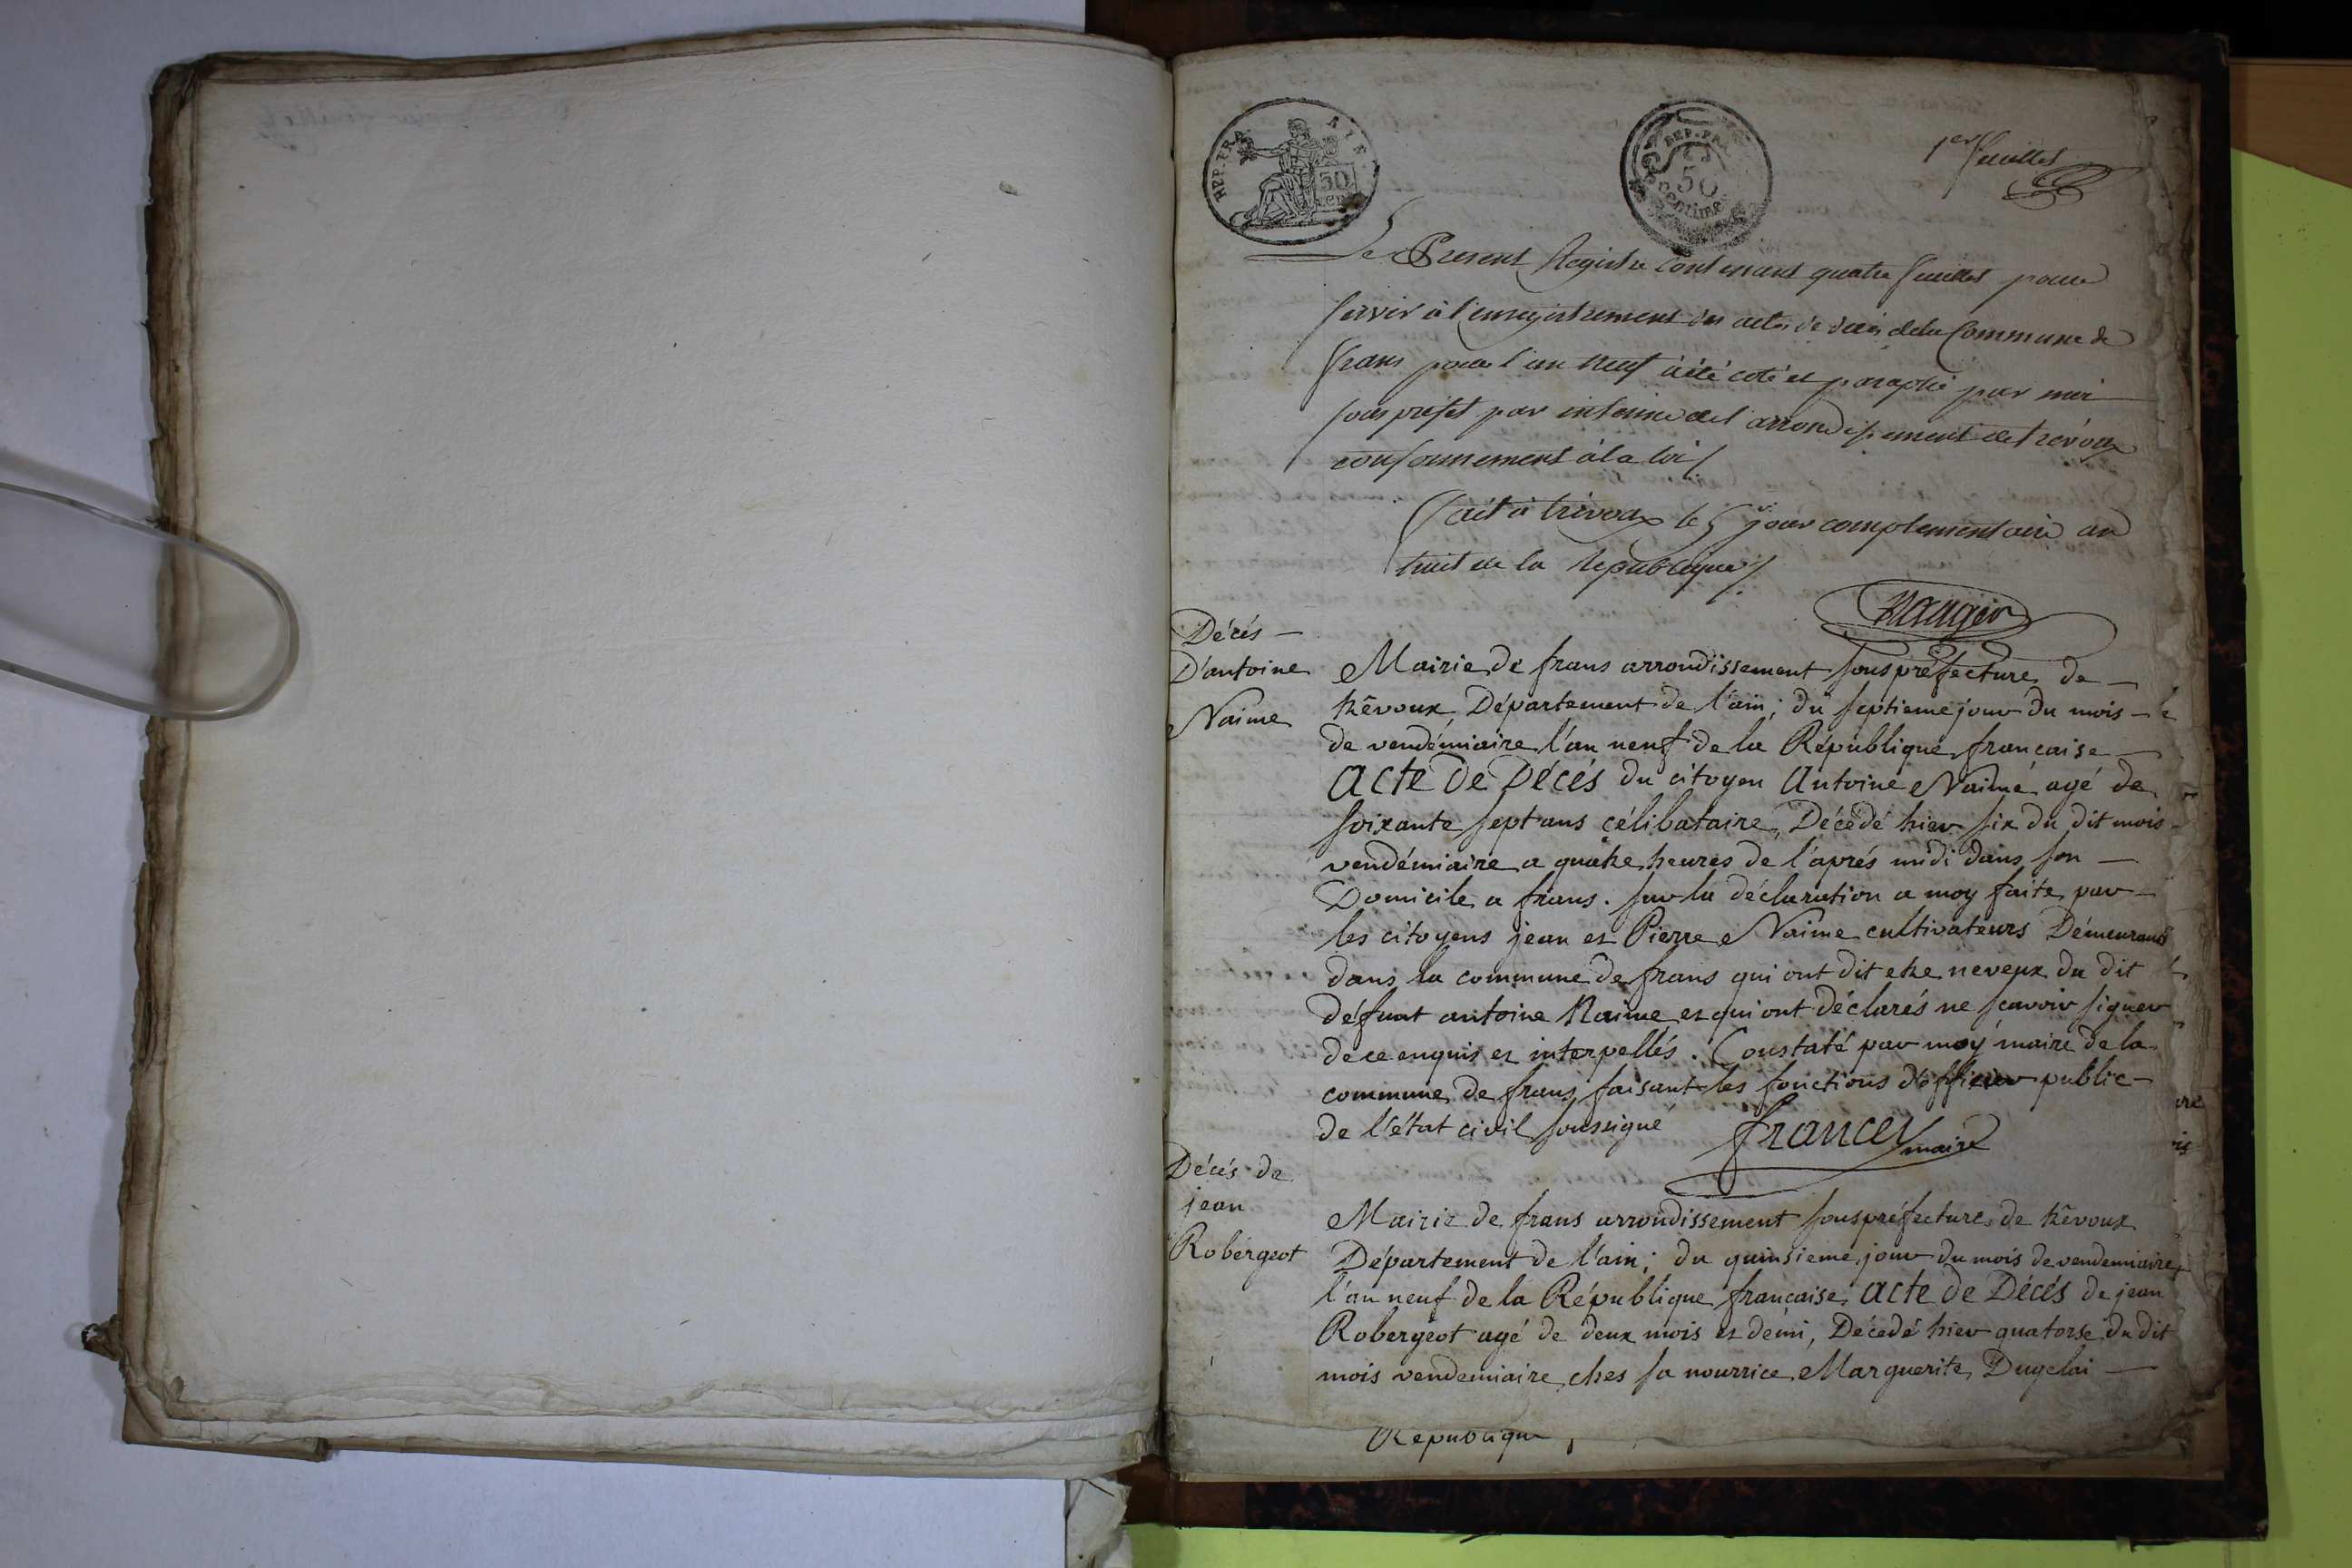 REP. FRA.
RIE.
50
cen.
REP. FRA.
50
centimes
1er feuillet
Le Present Registre contenant quatre feuillets pour
servir à l'enregistrement des actes de décès de la Commune de
frans pour l'an neuf à été coté et paraphé par moi
sous préfet par interim de l'arrondissement de trévoux
conformement à la loi /.
fait à trévoux le 5e jour complementaire an
huit de la Republique /.
Décés —
D'antoine
Naime
Mairie de frans arrondissement souspréfecture de —
trêvoux Département de l'ain; du septieme jour du mois —
de vendémiaire l'an neuf de la République française —
acte de Décés du citoyen Antoine Naime agé de
soixante sept ans célibataire, Décédé hier six du dit mois
vendémiaire a quatre heures de l'aprés midi dans son —
Domicile a frans. sur la déclaration a moy faite par —
les citoyens jean et Pierre Naime cultivateurs Démeurans
dans la commune de frans qui ont dit etre neveux du dit
défunt antoine Naime et qui ont déclarés ne scavoir signer
de ce enquis et interpellés. Constaté par moy maire de la
commune de frans faisant les fonctions d'officier public —
de l'état civil soussigné
maire
Décés de
jean
Robergeot
Mairie de frans arrondissement souspréfecture de trêvoux
Département de l'ain; du quinsieme jour du mois de vendemiaire
l'an neuf de la République française. acte de Décés de jean
Robergeot agé de deux mois et demi, Décedé hier quatorse du dit
mois vendemiaire ches sa nourrice Marguerite Dugelai —
Republique